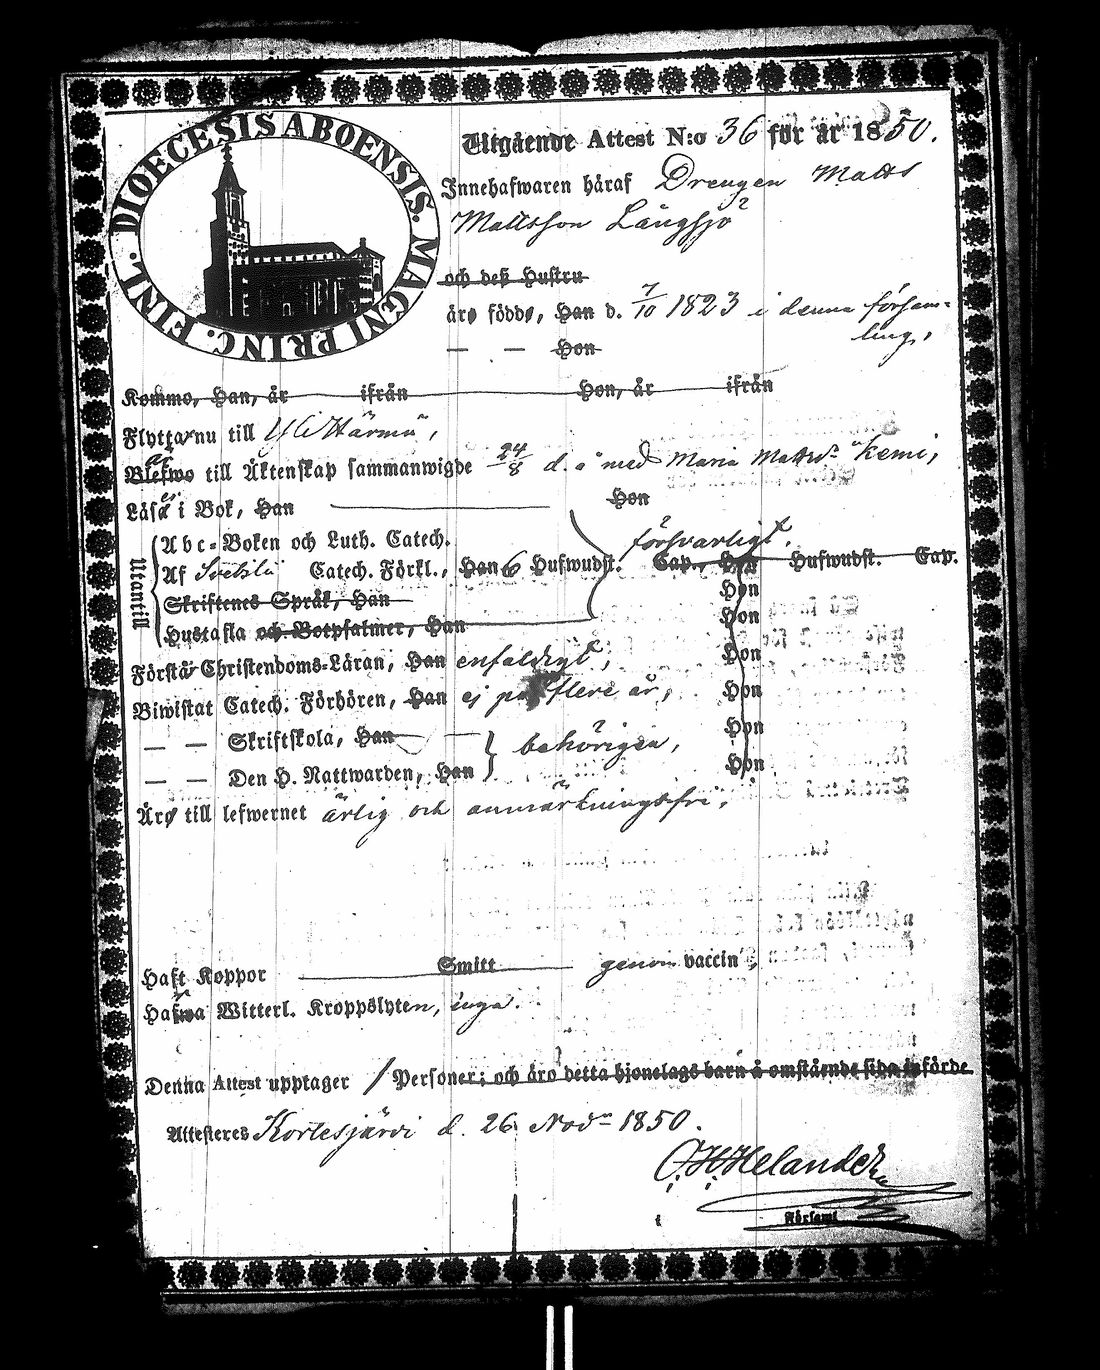 DIOECESIS ABOENSIS. MAGNI PRINC. FINL.
Utgående Attest N:o 36 för år 1850.
Innehafwaren häraf Drengen Matts
Mattsson Långsjö
och deß Hustru
äro födde, Han d. 7/10 1823 i denna försam=
ling,
— — Hon
Kommo, Han, år ifrån Hon, år ifrån
Flyttar nu till Ylihärmä,
Blefwo till Äktenskap sammanwigde 24/8 d. å med Maria Mattsd: Kemi,
Läsa i Bok, Han Hon
Utantill
Abc-Boken och Luth. Catech. försvarligt.
Af Svebilii Catech. Förkl., Han 6 Hufwudst. Cap., Hon Hufwudst. Cap.
Skriftenes Språk, Han Hon
Hustafla och Botpsalmer, Han Hon
Förstå Christendoms-Läran, Han enfaldigt, Hon
Biwistat Catech. Förhören, Han ej på flere år, Hon
— — Skriftskola, Han Hon
behörigen,
— — Den H. Nattwarden, Han Hon
Äro till lefwernet ärlig och anmärkningsfri,
Haft Koppor Smitt genom vaccin,
Hafwa Witterl. Kroppslyten, inga.
Denna Attest upptager 1 Personer; och äro detta hjonelags barn å omstående sida införde
Attesteres Kortesjärvi d. 26 Nov: 1850.
C. H. Helander
Församl.